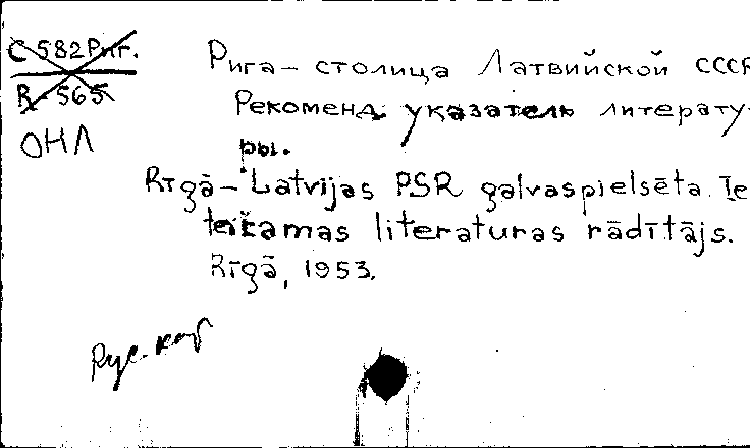 С 582 Риг.
R-565
ОНЛ
Рига — столица Латвийской ССР
Рекоменд. указатель литерату-
ры.
Rīgā — Latvijas PSR galvaspielsēta. Ie
teikamas literaturas rādītājs.
Rīgā, 1953.
Рус. кар